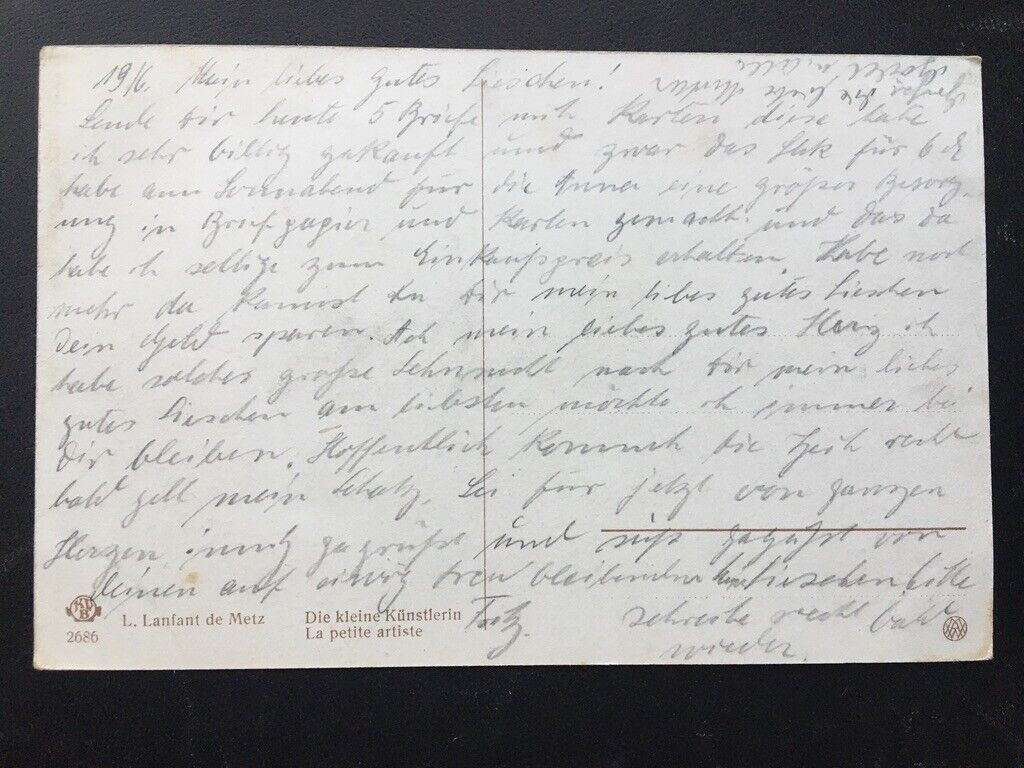 19/6. Mein liebes gutes Lieschen!
Sende dir heute 5 Briefe mit Karten diese habe
ich sehr billig gekauft und zwar das Stk für 6 ₰
habe am Sonnabend für die Anna eine größer Besorg-
ung in Briefpapier und Karten gemacht. und das da
habe ich selbige zum Einkaufspreis erhalten. Habe noch
mehr da kannst du dir mein liebes gutes Lieschen
dein Geld sparen. Ach mein liebes gutes Herz ich
habe solches große Sehnsucht nach dir mein liebes
gutes Lieschen am liebsten möchte ich immer bei
dir bleiben. Hoffentlich kommt die Zeit recht
bald gelt mein Schatz. Sei für jetzt von ganzen
Herzen innig gegrüßt und süß geküßt von
deinen auf ewig treu bleibenden Lieschen bitte
Fritz. schreibe recht bald
wieder.
KV
B
2686
L. Lanfant de Metz
Die kleine Künstlerin
La petite artiste